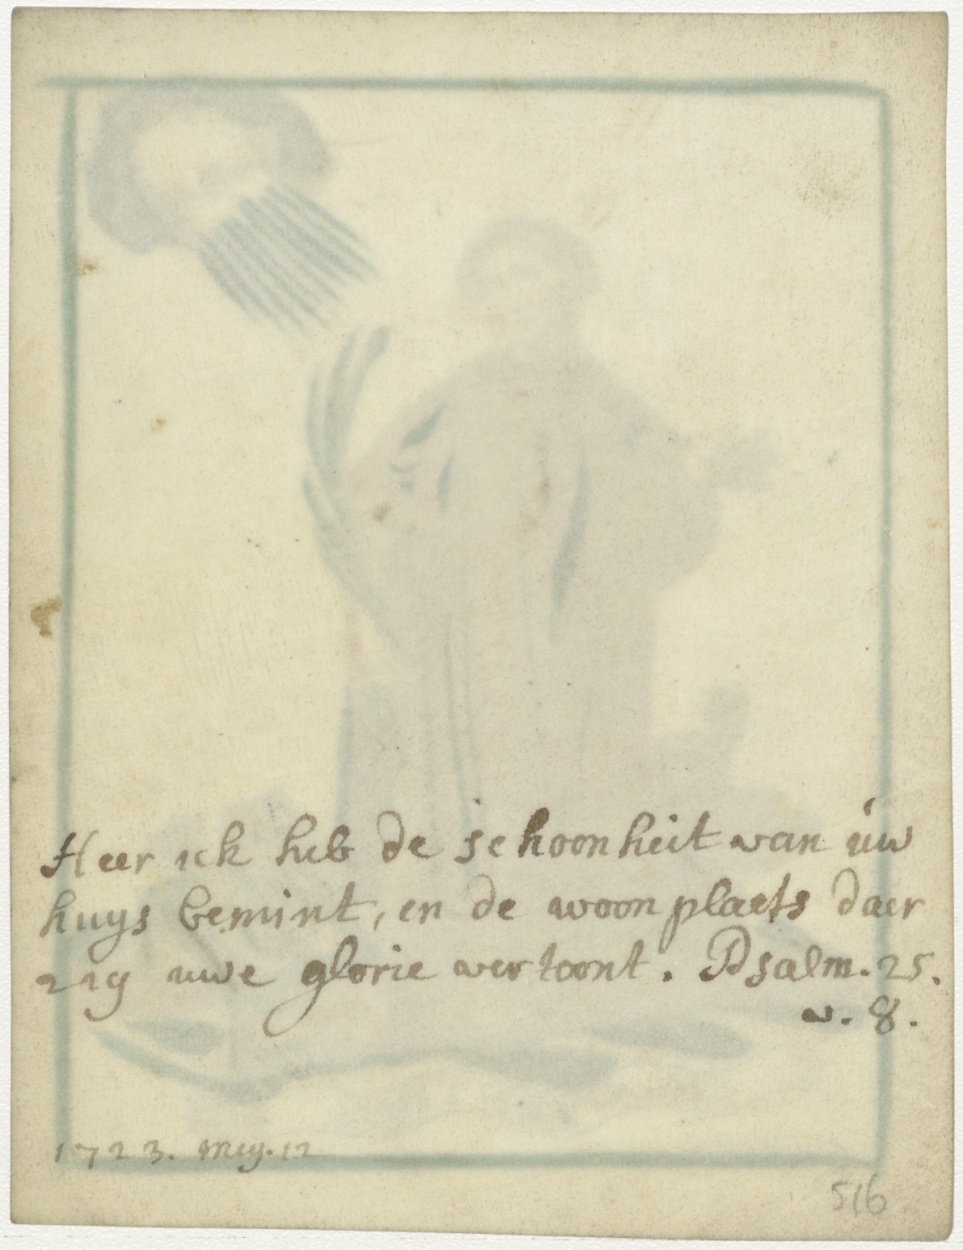 Heer ick heb de schoonheit van úw
huys bemint, en de woonplaets daer
zig uwe glorie vertoont. Psalm. 25.
v. 8.
1723. Mey. 12
516